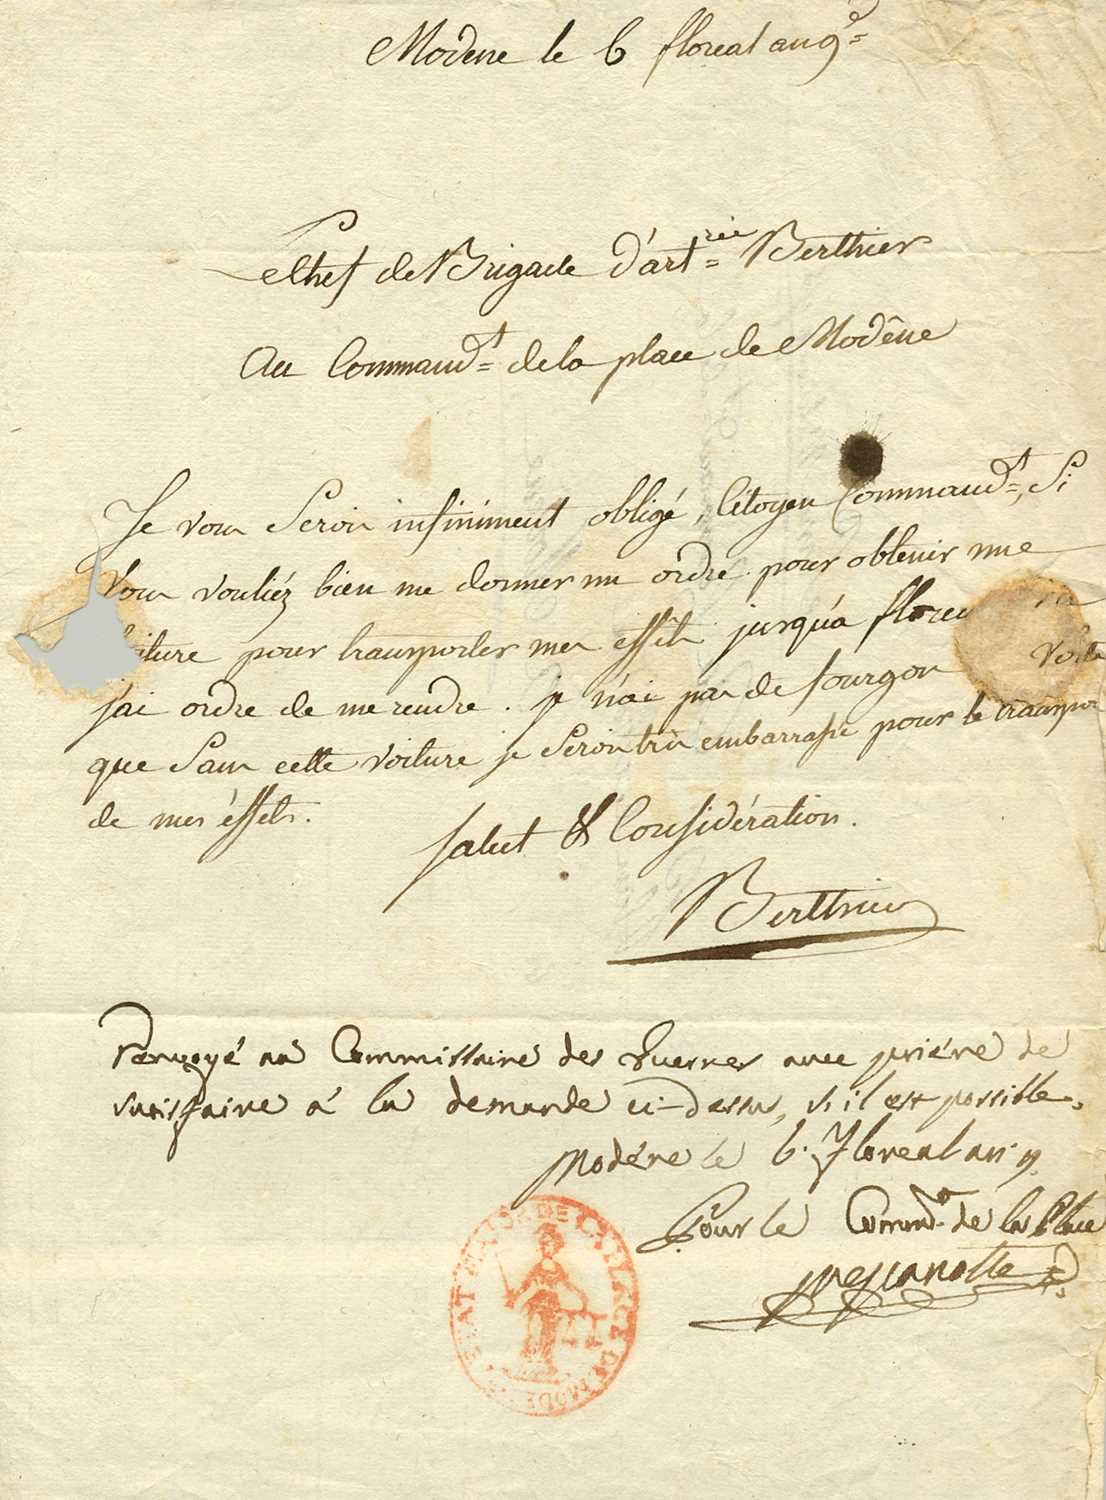 Modene le 6 floreal an 9e
Le Chef de Brigade d'artrie Berthier
Au Commandt de la place de Modêne
Je vous serois infiniment obligé, Citoyen Commandt, si
vous vouliéz bien me donner un ordre pour obtenir une
voiture pour transporter mes effêts jusqu'a
j'ai ordre de me rendre. je n'ai pas de fourgon
que sans cette voiture je serois très embarassé pour le transpor
de mes éffets.
salut & Considération.
Berthier
Renvoyé au Commissaire des Guerres avec priére de
satisfaire à la demande ci-dessus, s'il est possible.
Modéne le 6. Floréal an. 9.
Pour le Command.t de la Place
ETAT MAJOR DE LA PLACE DE MODENE